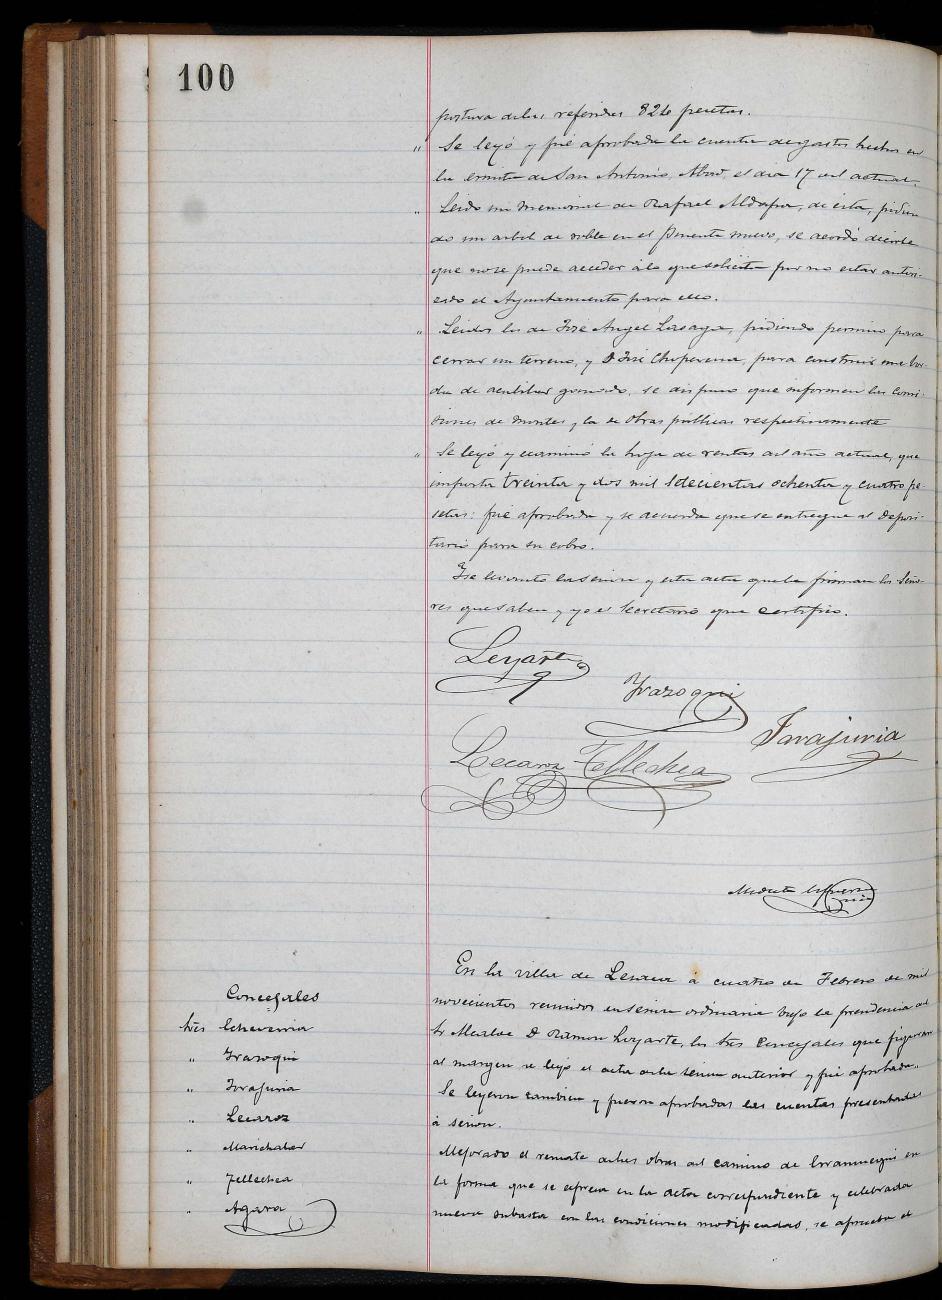 100
postura de las referidas 824 pesetas.
" Se leyó y fué aprobada la cuenta de gastos hechos en
la ermita de San Antonio Abad, el dia 17 del actual.
" Leido un memorial de Rafael Aldapur, de esta, pidien
do un arbol de roble en el puente nuevo, se acordó decirle
que no se puede acceder á lo que solicita por no estar autori-
zado el Ayuntamiento para ello.
" Leidos los de José Angel Lasaga, pidiendo permiso para
cerrar un terreno, y D José Choperena, para construir una bor-
da de acubilar ganado, se dispuso que informen las Comi-
siones de montes y la de obras públicas respectivamente
" Se leyó y examinó la hoja de rentas del año actual, que
importa treinta y dos mil setecientas ochenta y cuatro pe-
setas: fué aprobada y se acuerda que se entregue al deposi-
tario para su cobro.
Y se levantó la sesion y esta acta que la firman los Seño-
res que saben y yo el Secretario que certifico.
Loyarte
Yrazoqui
Lecaroz Tellechea
Iarajuria
Modesto
En la villa de Lesaca á cuatro de Febrero de mil
novecientos reunidos en sesion ordinaria bajo la presidencia del
Sr Alcalde D Ramon Loyarte, los Sres Concejales que figuran
al margen se leyó el acta de la sesion anterior y fué aprobada.
Se leyeron tambien y fueron aprobadas las cuentas presentadas
á sesion.
Mejorado el remate de las obras del camino de en
la forma que se espresa en la acta correspondiente y celebrada
nueva subasta con las condiciones modificadas, se aprueba el
Concejales
Sres Echeverria
" Yrazoqui
" Iarajuria
" Lecaroz
" Marichalar
" Tellechea
" Agara